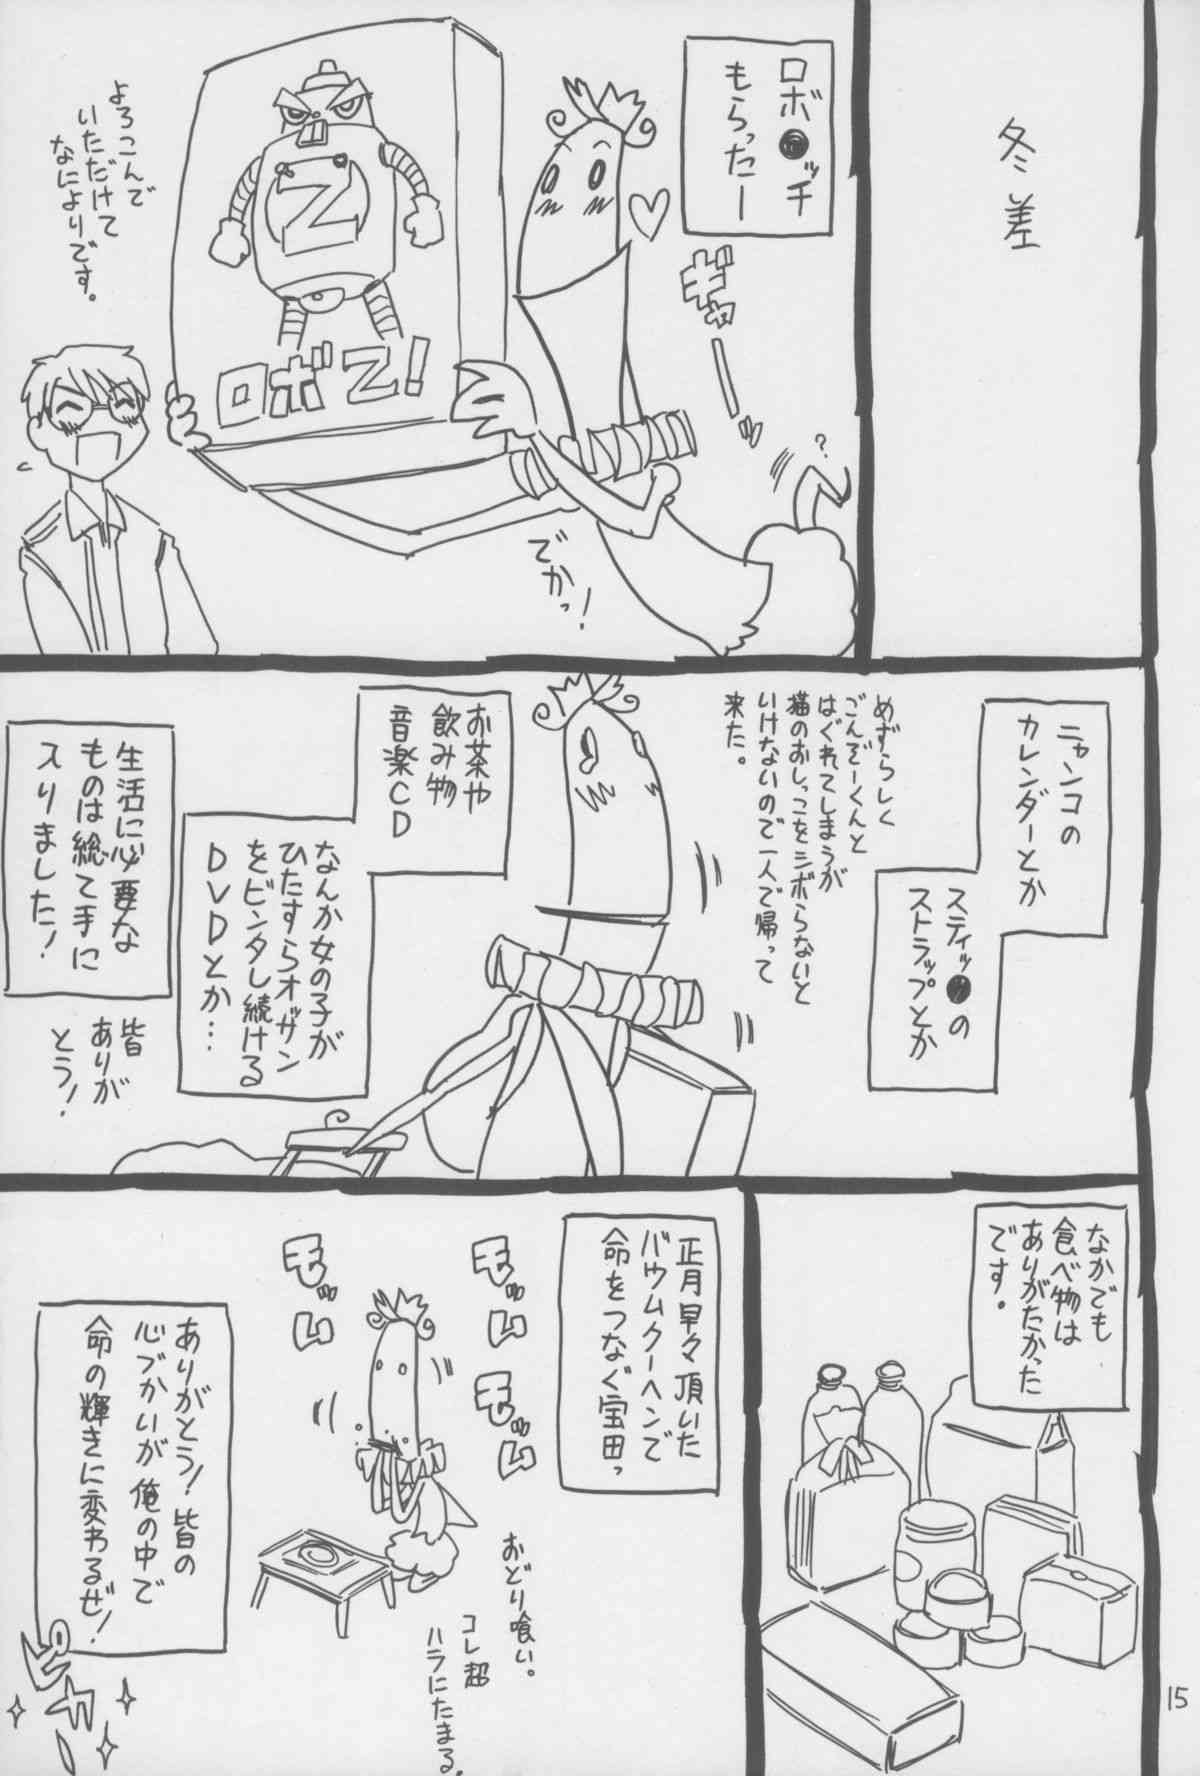 冬差
ロボ●ッチ
もらったー
ギャーッ
?
でかっ!
ロボZ!
Z
よろこんで
いただけて
なによりです。
ニャンコの
カレンダーとか
スティッ●の
ストラップとか
めずらしく
ごんぞーくんと
はぐれてしまうが
猫のおしっこをシボらないと
いけないので一人で帰って
来た。
お茶や
飲み物
音楽CD
なんか女の子が
ひたすらオッサン
をビンタし続ける
DVDとか…
生活に必要な
ものは総て手に
入りました!
皆
ありが
とう!
なかでも
食べ物は
ありがたかった
です。
正月早々頂いた
バウムクーヘンで
命をつなぐ宝田っ
モッム
モッム
モッム
おどり喰い。
コレ超
ハラにたまる。
ありがとう!皆の
心づかいが俺の中で
命の輝きに変わるぜ!
ピカッ
15